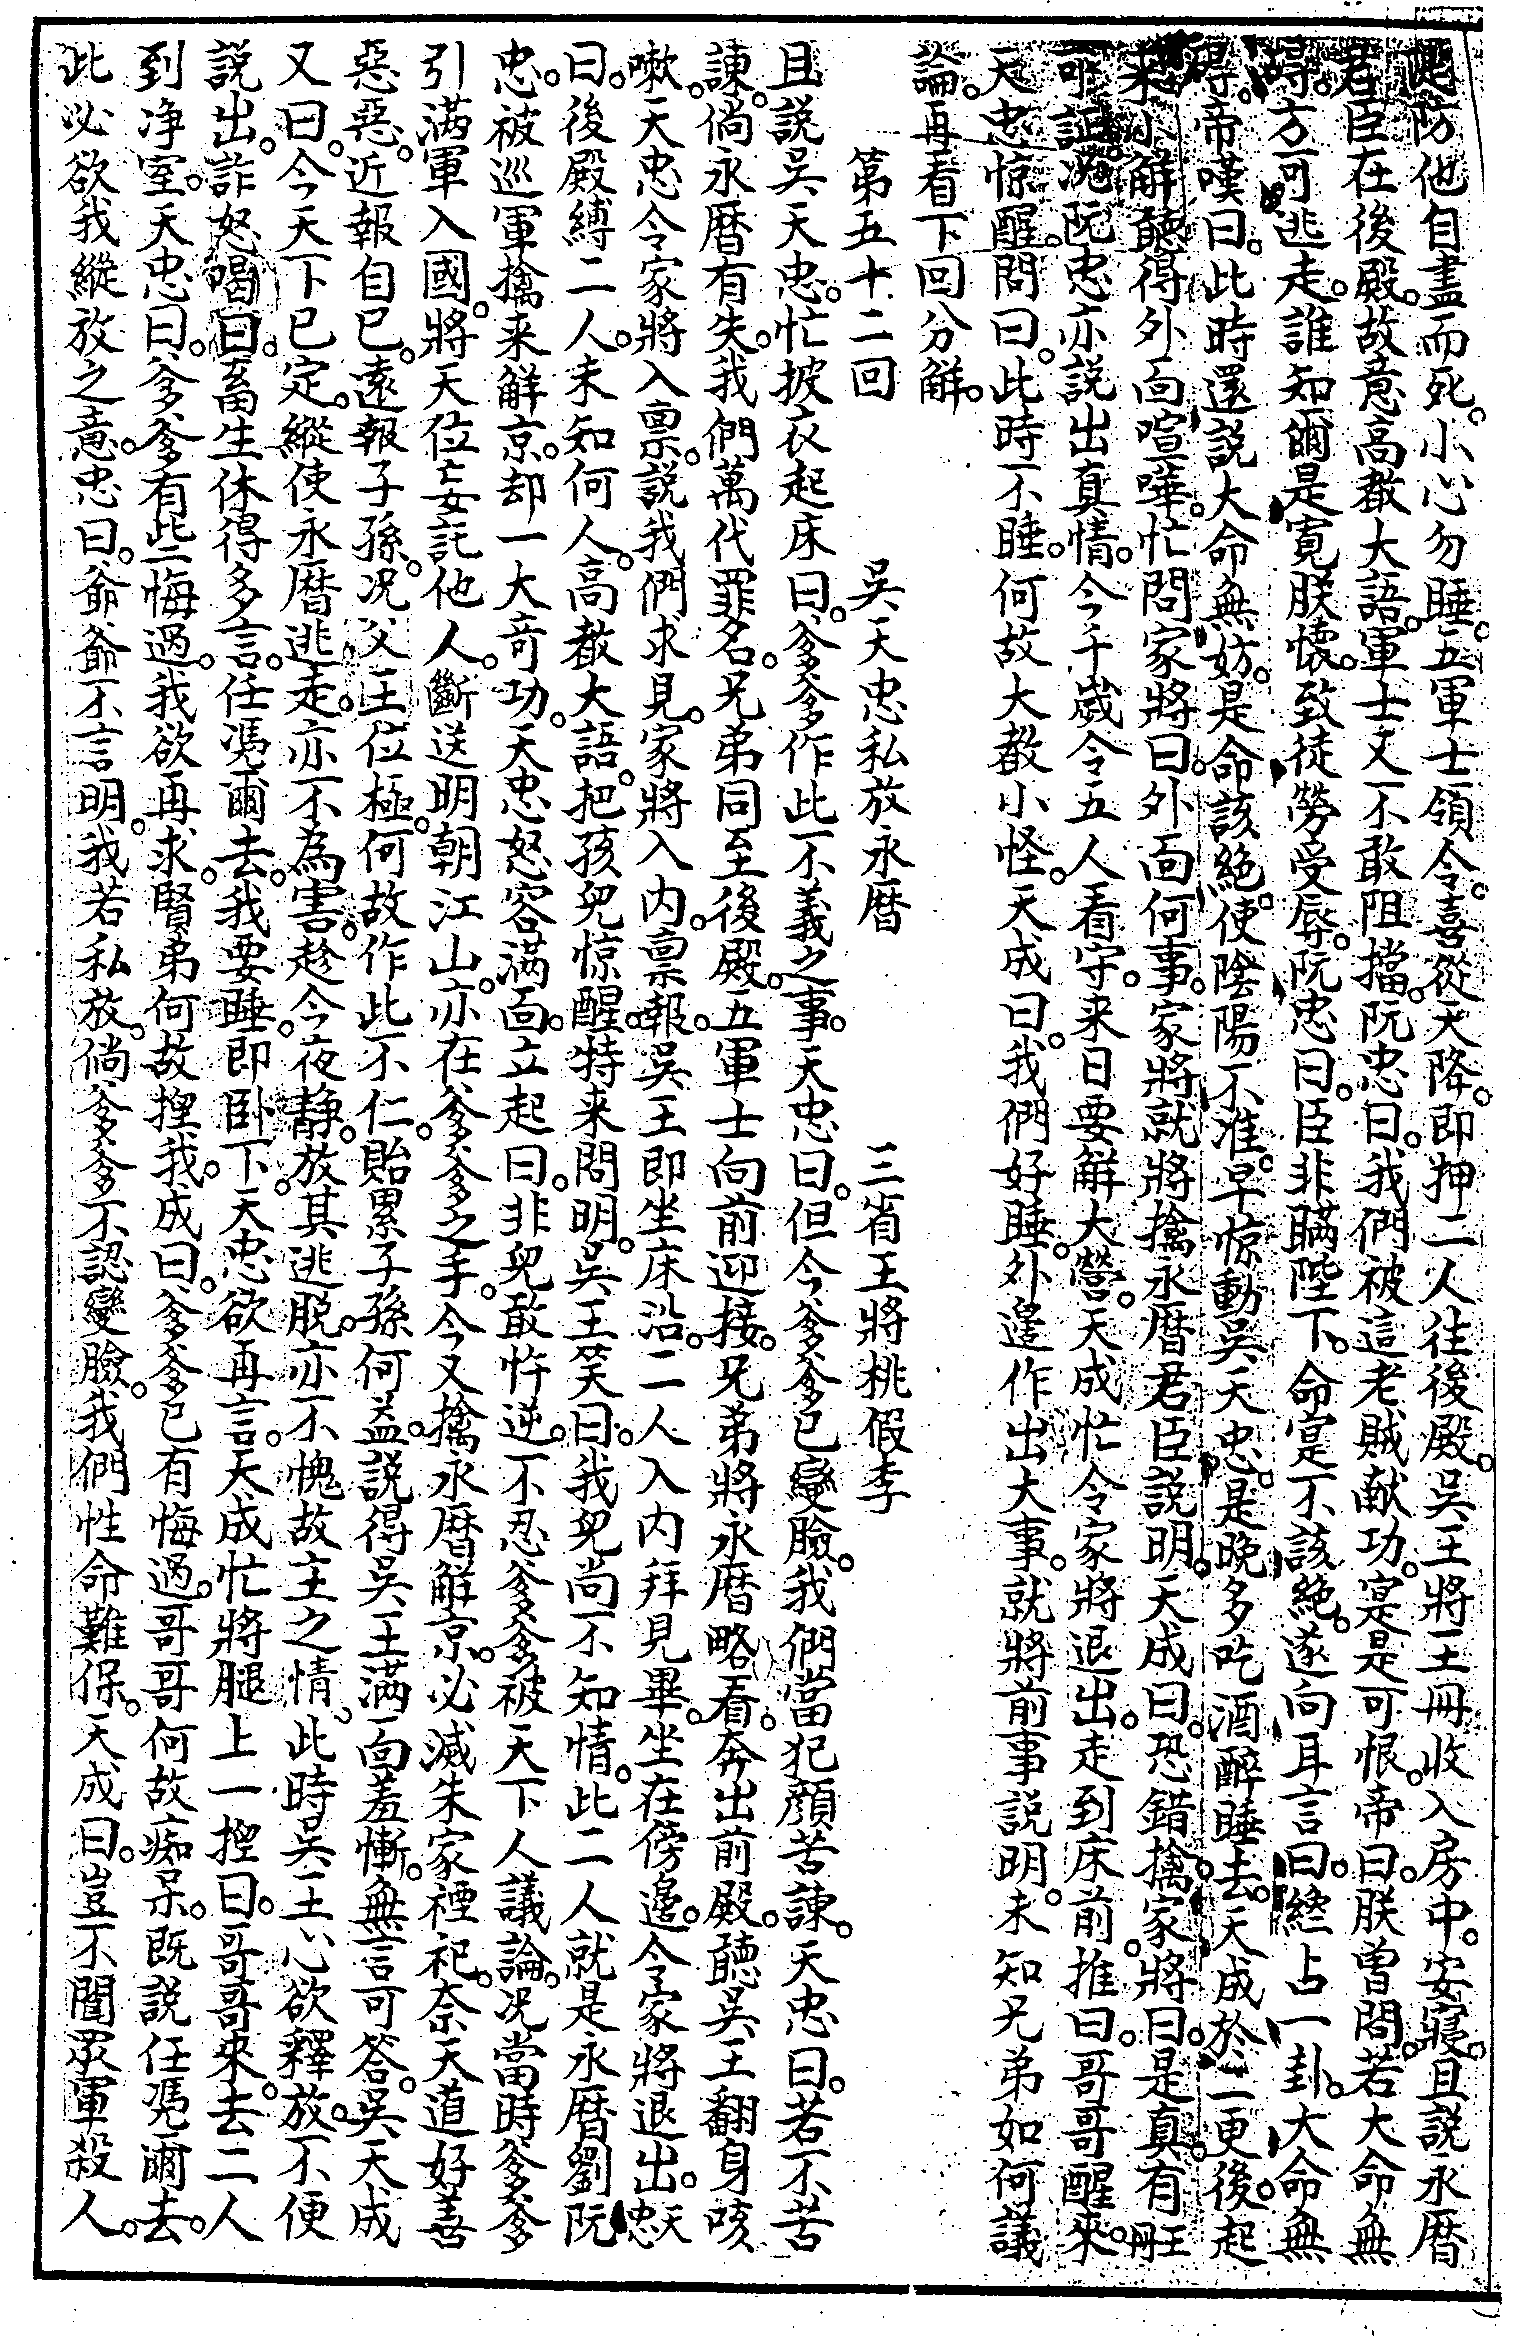 防他自盡而死。小心勿睡。五軍士領令。喜從天降。即押二人往後殿。吳王將王冊收入房中。安寢。且說永曆
君臣在後殿。故意高聲大語。軍士又不敢阻擋。阮忠曰。我們被這老賊献功。寔是可恨。帝曰。朕曾閱。若大命無
得。方可逃走。誰知爾是寬朕懷。致徒勞受辱。阮忠曰。臣非瞞陛下。命寔不該絕。遂向耳言曰。纔占一卦。大命無
得。帝嘆曰。此時還說大命無妨。是命該絕。使陰陽不准。早惊動吳天忠。是晚多吃酒醉睡去。天成於二更後。起
來小解。聽得外面喧嘩。忙問家將曰。外面何事。家將就將擒永曆君臣說明。天成曰。恐錯擒。家將曰。是真。有王冊
可証。況阮忠亦說出真情。今千歲令五人看守。来日要解大營。天成忙令家將退出。走到床前推曰。哥哥醒來。
天忠惊醒。問曰。此時不睡。何故大聲小怪。天成曰。我們好睡。外邊作出大事。就將前事説明。未知兄弟如何議
論。再看下回分解。
第五十二回　吳天忠私放永曆　三省王將桃假李
且説吳天忠。忙披衣起床曰。爹爹作此不義之事。天忠曰。但今爹爹已變臉。我們當犯顏苦諫。天忠曰。若不苦
諫。倘永曆有失。我們萬代罪名。兄弟同至後殿。五軍士向前迎接。兄弟將永曆略看。奔出前殿。聽吳王翻身咳
嗽。天忠令家將入禀。説我們求見。家將入內。禀報。吳王即坐床沿。二人入內拜見畢。坐在傍邊。令家將退出。天忠
曰。後殿縛二人。未知何人。高聲大語。把孩兒惊醒。特来問明。吳王笑曰。我兒尚不知情。此二人就是永曆劉阮
忠。被巡軍擒来解京。却一大奇功。天忠怒容满面。立起曰。非兒敢忤逆。不忍爹爹被天下人議論。況當時爹爹
引满軍入國。將天位妄託他人。斷送明朝江山。亦在爹爹之手。今又擒永曆解京。必滅朱家禋祀。奈天道好善
惡惡。近報自已。遠報子孫。況父王位極。何故作此不仁。貽累子孫何益。說得吳王满面羞慚。無言可答。吳天成
又曰。今天下已定。縱使永曆逃走。亦不為害。趁今夜静。放其逃脱。亦不愧故主之情。此時吳王心欲釋放。不便
説出。詐怒喝曰。畜生休得多言。任凴爾去。我要睡。即卧下。天忠欲再言。天成忙將腿上一揑曰。哥哥來去。二人
到净室。天忠曰。爹爹有些悔過。我欲再求。賢弟何故揑我。成曰。爹爹已有悔過。哥哥何故痴呆。既説任凴爾去。
此必欲我縱放之意。忠曰。爺爺不言明。我若私放。倘爹爹不認變臉。我們性命難保。天成曰。豈不聞眾軍殺人。